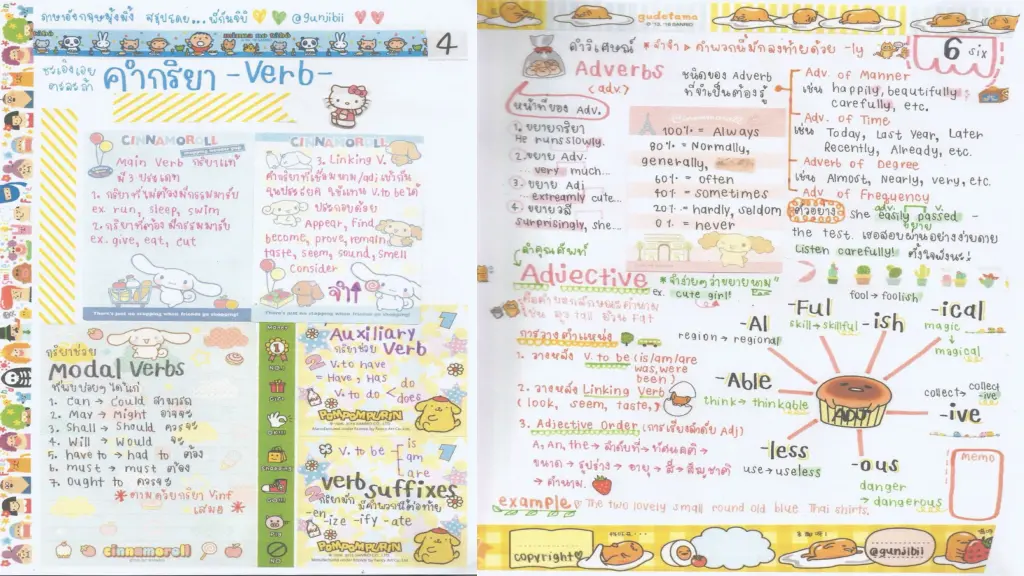 ภาษาอังกฤษมุ้งมิ้ง สรุปโดย... พี่กันจิบิ @gunjibii
4
ชะเอิงเอย
คำกริยา -Verb-
CINNAMOROLL
Main Verb กริยาแท้
มี 3 ประเภท
1. กริยาที่ไม่ต้องมีกรรมมารับ
ex. run, sleep, swim
2. กริยาที่ต้องมีกรรมมารับ
ex. give, eat, cut
There's just no stopping when friends go shopping!
CINNAMOROLL
3. Linking V.
Appear, find,
become, prove, remain
taste, seem, sound, smell
consider
จำ
There's just no stopping when friends go shopping!
กริยาช่วย
Modal Verbs
ที่พบบ่อยๆ ได้แก่
1. Can → Could สามารถ
2. May → Might อาจจะ
3. Shall → Should ควรจะ
4. Will → Would จะ
5. have to → had to ต้อง
6. must → must ต้อง
7. Ought to ควรจะ
*ตามด้วยกริยา Vinf
เสมอ *
cinnamoroll
Auxiliary
กริยาช่วย Verb
V. to have
= Have, Has
V. to do < do
does
POMPOMPURIN
V. to be is
am
are
Verb suffixes
กริยามักมีคำพวกนี้ต่อท้าย
-en -ize -ify -ate
POMPOMPURIN
gudetama
6 six
คำวิเศษณ์ *คำจำ > คำพวกนี้มักลงท้ายด้วย -ly
Adverbs
(adv.)
หน้าที่ของ Adv.
1. ขยายกริยา
He runs slowly.
2. ขยาย Adv.
... very much...
3. ขยาย Adj
...extreamly cute...
4. ขยายวลี
surprisingly, she...
ชนิดของ Adverb
ที่จำเป็นต้องรู้
100% = Always
80% = Normally,
generally,
60% = often
40% = sometimes
20% = hardly, seldom
0% = never
Adv. of Manner
เช่น happily, beautifully
carefully, etc.
Adv. of Time
เช่น Today, Last Year, Later
Recently, Already, etc.
Adverb of Degree
เช่น Almost, Nearly, very, etc.
Adv. of Frequency
ตัวอย่าง she easily passed
ขยาย
the test. เธอสอบผ่านอย่างง่ายดาย
Listen carefully! ตั้งใจฟังนะ!
คำคุณศัพท์
Adjective
*จำง่ายๆ ว่าขยายนาม
ex. cute girl!
คือคำบอกลักษณะคำนาม
เช่น สูง tall อ้วน Fat
การวางตำแหน่ง
1. วางหลัง V. to be (is/am/are
was, were
been)
2. วางหลัง Linking Verb
(look, seem, taste,)
3. Adjective Order (การเรียงลำดับ Adj)
A, An, the → ลำดับที่ → ทัศนคติ →
ขนาด → รูปร่าง → อายุ → สี → สัญชาติ
→ คำนาม.
example The two lovely small round old blue Thai shirts.
-Ful
skill → skillful
fool → foolish
-ish
-ical
magic
↓
magical
-Al
region → regional
-Able
think → thinkable
ADJ
collect → collect
-ive
-ive
-less
use → useless
-ous
danger
→ dangerous
MEMO
copyright
@gunjibii